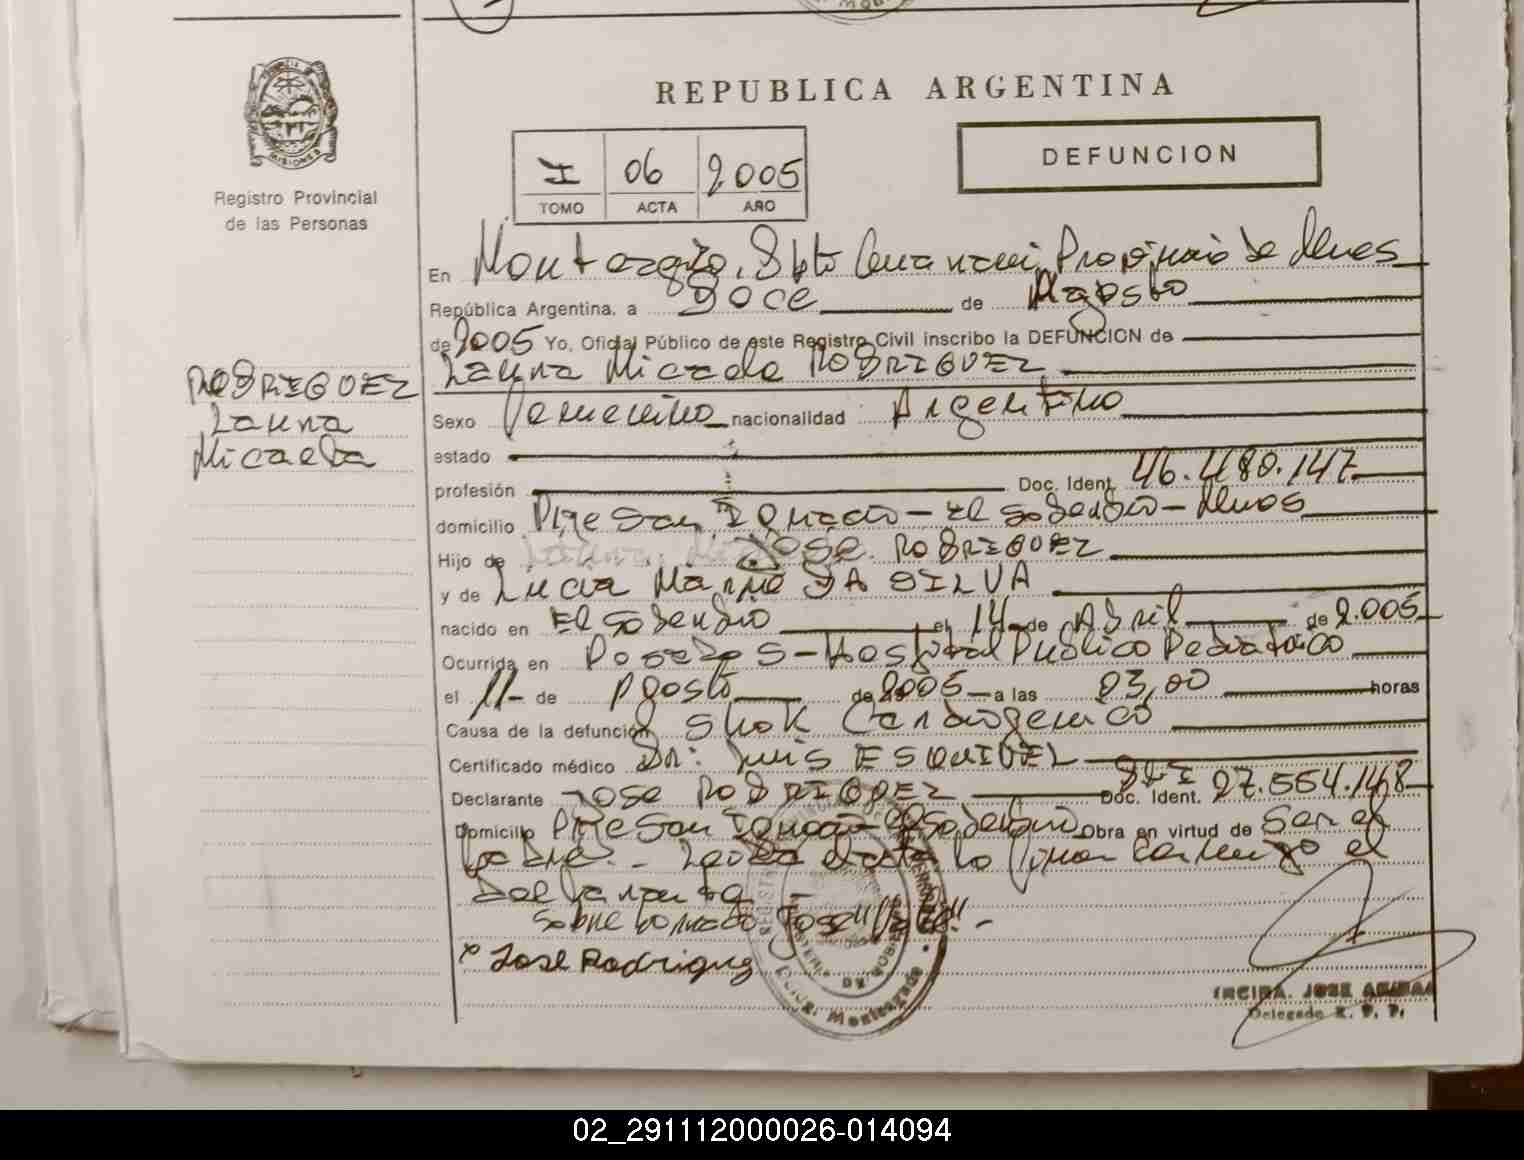 REPUBLICA ARGENTINA
PROVINCIA DE
MISIONES
Registro Provincial
de las Personas
I 06 2005
TOMO ACTA AÑO
DEFUNCION
En Monteagudo, Dpto Guaraní Provincia de Mnes
República Argentina, a Doce de Agosto
de 2005 Yo, Oficial Público de este Registro Civil inscribo la DEFUNCION de
Laura Micaela RODRIGUEZ
RODRIGUEZ
Laura
Micaela
Sexo Femenino nacionalidad Argentino
estado
profesión Doc. Ident. 46.480.147
domicilio Pje San Ignacio - El Soberbio - Mnes
Hijo de José RODRIGUEZ
y de Lucia Marne DA SILVA
nacido en El Soberbio el 14 de Abril de 2.005
Ocurrida en Posadas - Hospital Público Pediatrico
el 11 de Agosto de 2005 a las 23,00 horas
Causa de la defunción Shok Cardiogenico
Certificado médico Dr: Luis ESQUIVEL
Declarante Jose RODRIGUEZ DNI
Doc. Ident. 27.554.148
Domicilio Pje San Ignacio - El Soberbio Obra en virtud de Ser el
Padre. - Leida el acta la firma conmigo el
Declarante
Sobre borrado "José" Vale". -
x Jose Rodriguez
Monteagudo
JOSE
Delegado R. P. P.
02_291112000026-014094